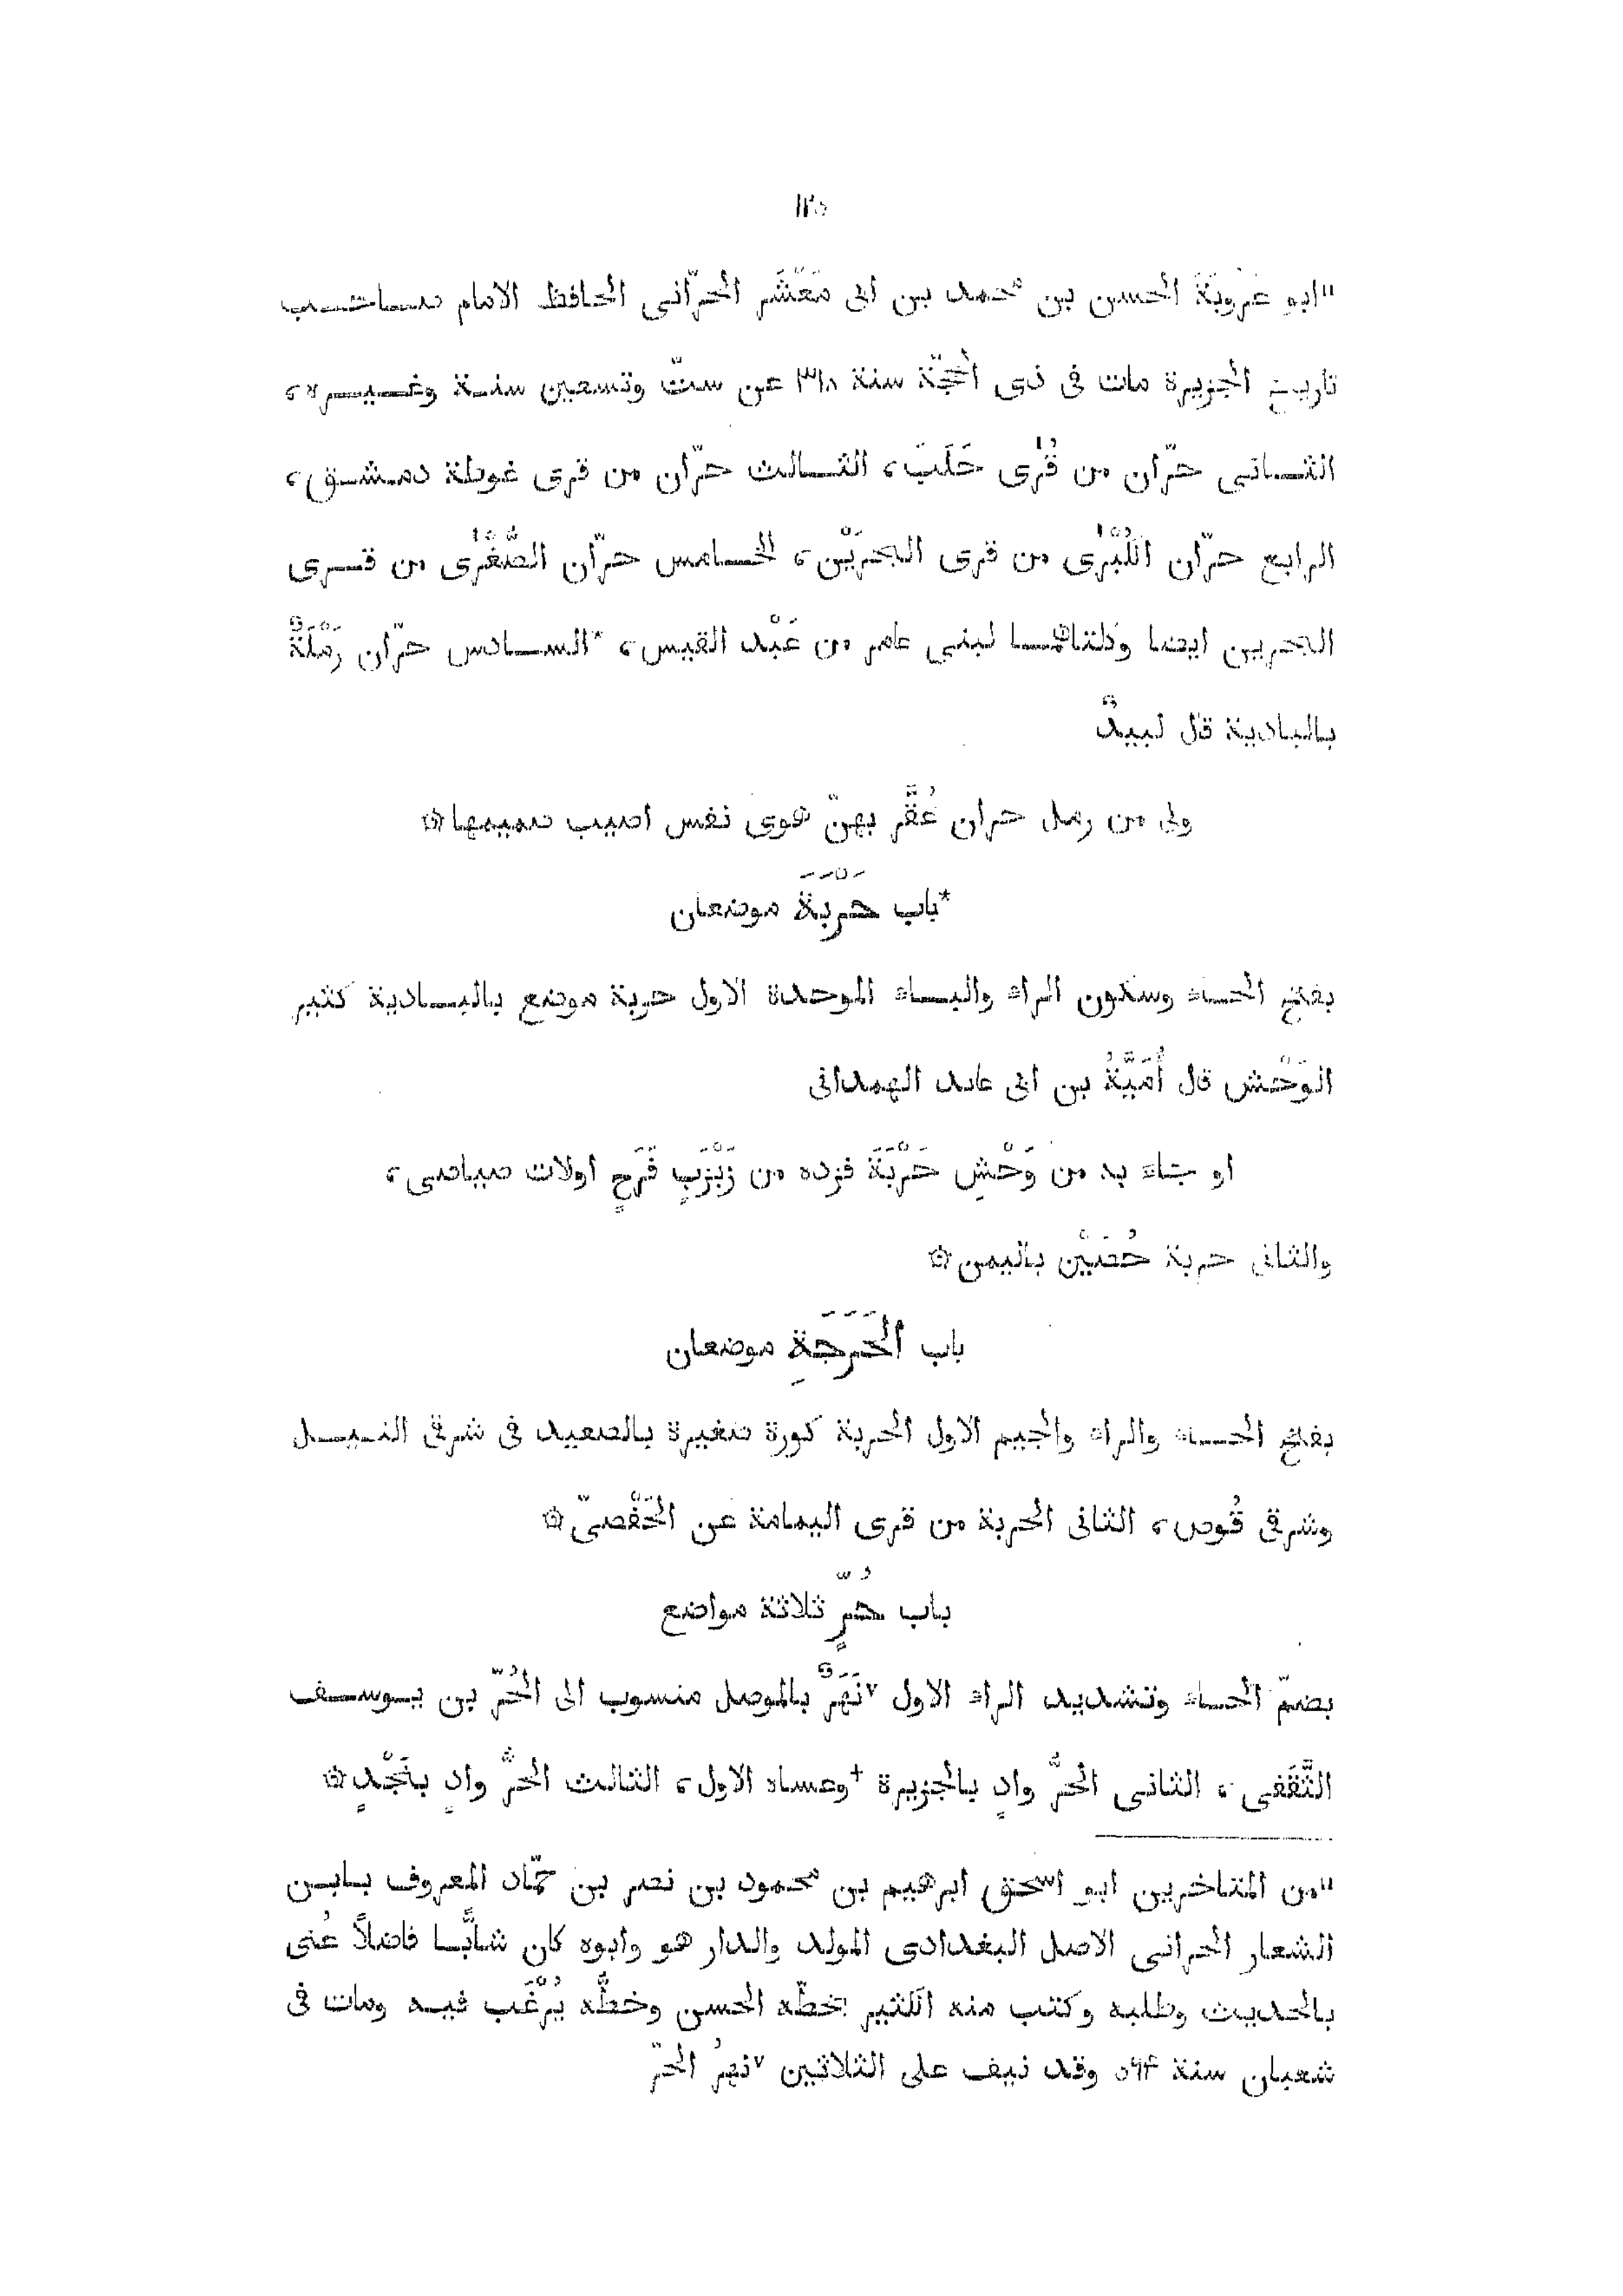 ١٢٥
"ابو عَرُوبَةَ الحسن بن محمد بن ابى مَعْشَر الحرّانى الحافظ الامام صاحب
تاريخ الجزيرة مات فى ذى الحجّة سنة ٣١٨ عن ستّ وتسعين سنة وغيره،
الثانى حرّان من قُرى حَلَبَ، الثالث حرّان من قرى غوطة دمشق،
الرابع حرّان الكُبْرَى من قرى البحرَيْن، الخامس حرّان الصُّغْرَى من قرى
البحرين ايضا وكلتاهما لبنى عامر من عَبْد القيس، *السادس حرّان رَمْلَةٌ
بالبادية قال لبيدٌ
ولى من رمل حران عُقَّر بهنّ هوى نفس اصيب صميمها۞
*باب حَرْبَةَ موضعان
بفتح الحاء وسكون الراء والباء الموحدة الاول حربة موضع بالبادية كثير
الوَحْش قال أُمَيَّةُ بن ابى عاىد الهمدانى
او جاء بد من وَحْشِ حَرْبَةَ فزده من رَبْرَبٍ فَرَحٍ اولات صياصى،
والثانى حربة حُصَيْن باليمن۞
باب الحَرَجَةِ موضعان
بفتح الحاء والراء والجيم الاول الحربة كورة صغيرة بالصعيد فى شرقى النيل
وشرقى قُوص، الثانى الحربة من قرى اليمامة عن الحَفْصىّ۞
باب حُرٍّ ثلاثة مواضع
بضمّ الحاء وتشديد الراء الاول ٧نَهَرٌ بالموصل منسوب الى الحُرّ بن يوسف
الثَّقَفى، الثانى الحرُّ وادٍ بالجزيرة +وعساه الاول، الثالث الحرُّ وادٍ بنَجْدٍ۞
"من المتاخرين ابو اسحق ابرهيم بن محمود بن نصر بن حمّاد المعروف بابن
الشعار الحرانى الاصل البغدادى المولد والدار هو وابوه كان شابًّا فاضلاً عُنى
بالحديث وطلبه وكتب منه الكثير بخطّه الحسن وخطُّه يُرْغَب فيه ومات فى
شعبان سنة ٥٩۴ وقد نيف على الثلاثين ٧نهرُ الحرّ